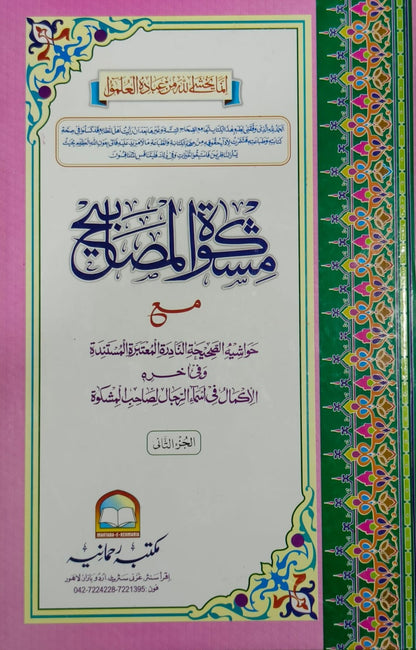 انما يخشى الله من عباده العلمؤا
مشكوة المصابيح
مع
حواشيه الصحيحة النادرة المعتبرة المستندة
وفي اخره
الاكمال في اسماء الرجال لصاحب المشكوة
الجزء الثاني
MAKTABA-E-REHMANIA
مکتبہ رحمانیہ
اقرأ سنٹر عزنی سٹریٹ اردو بازار لاہور
فون : 042-7224228-7221395